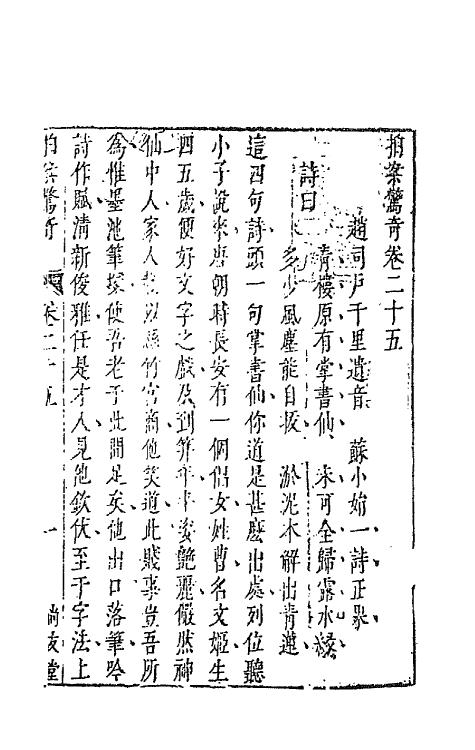 拍案驚奇卷二十五
趙司戶千里遺音　蘇小娟一詩正果
詩曰
青樓原有掌書仙　未可全歸露水緣
多少風塵能自拔　淤泥本解出青蓮
這四句詩頭一句掌書仙你道是甚麼出處列位聽
小子說來唐朝時長安有一個倡女姓曹名文姬生
四五歲便好文字之戲及到笄年丰姿艷麗儼然神
仙中人家人教以絲竹宮商他笑道此賤事豈吾所
為惟墨池筆塚使吾老于此間足矣他出口落筆吟
詩作賦清新俊雅任是才人見他欽伏至于字法上
拍案驚奇　卷二十五　一　尚友堂